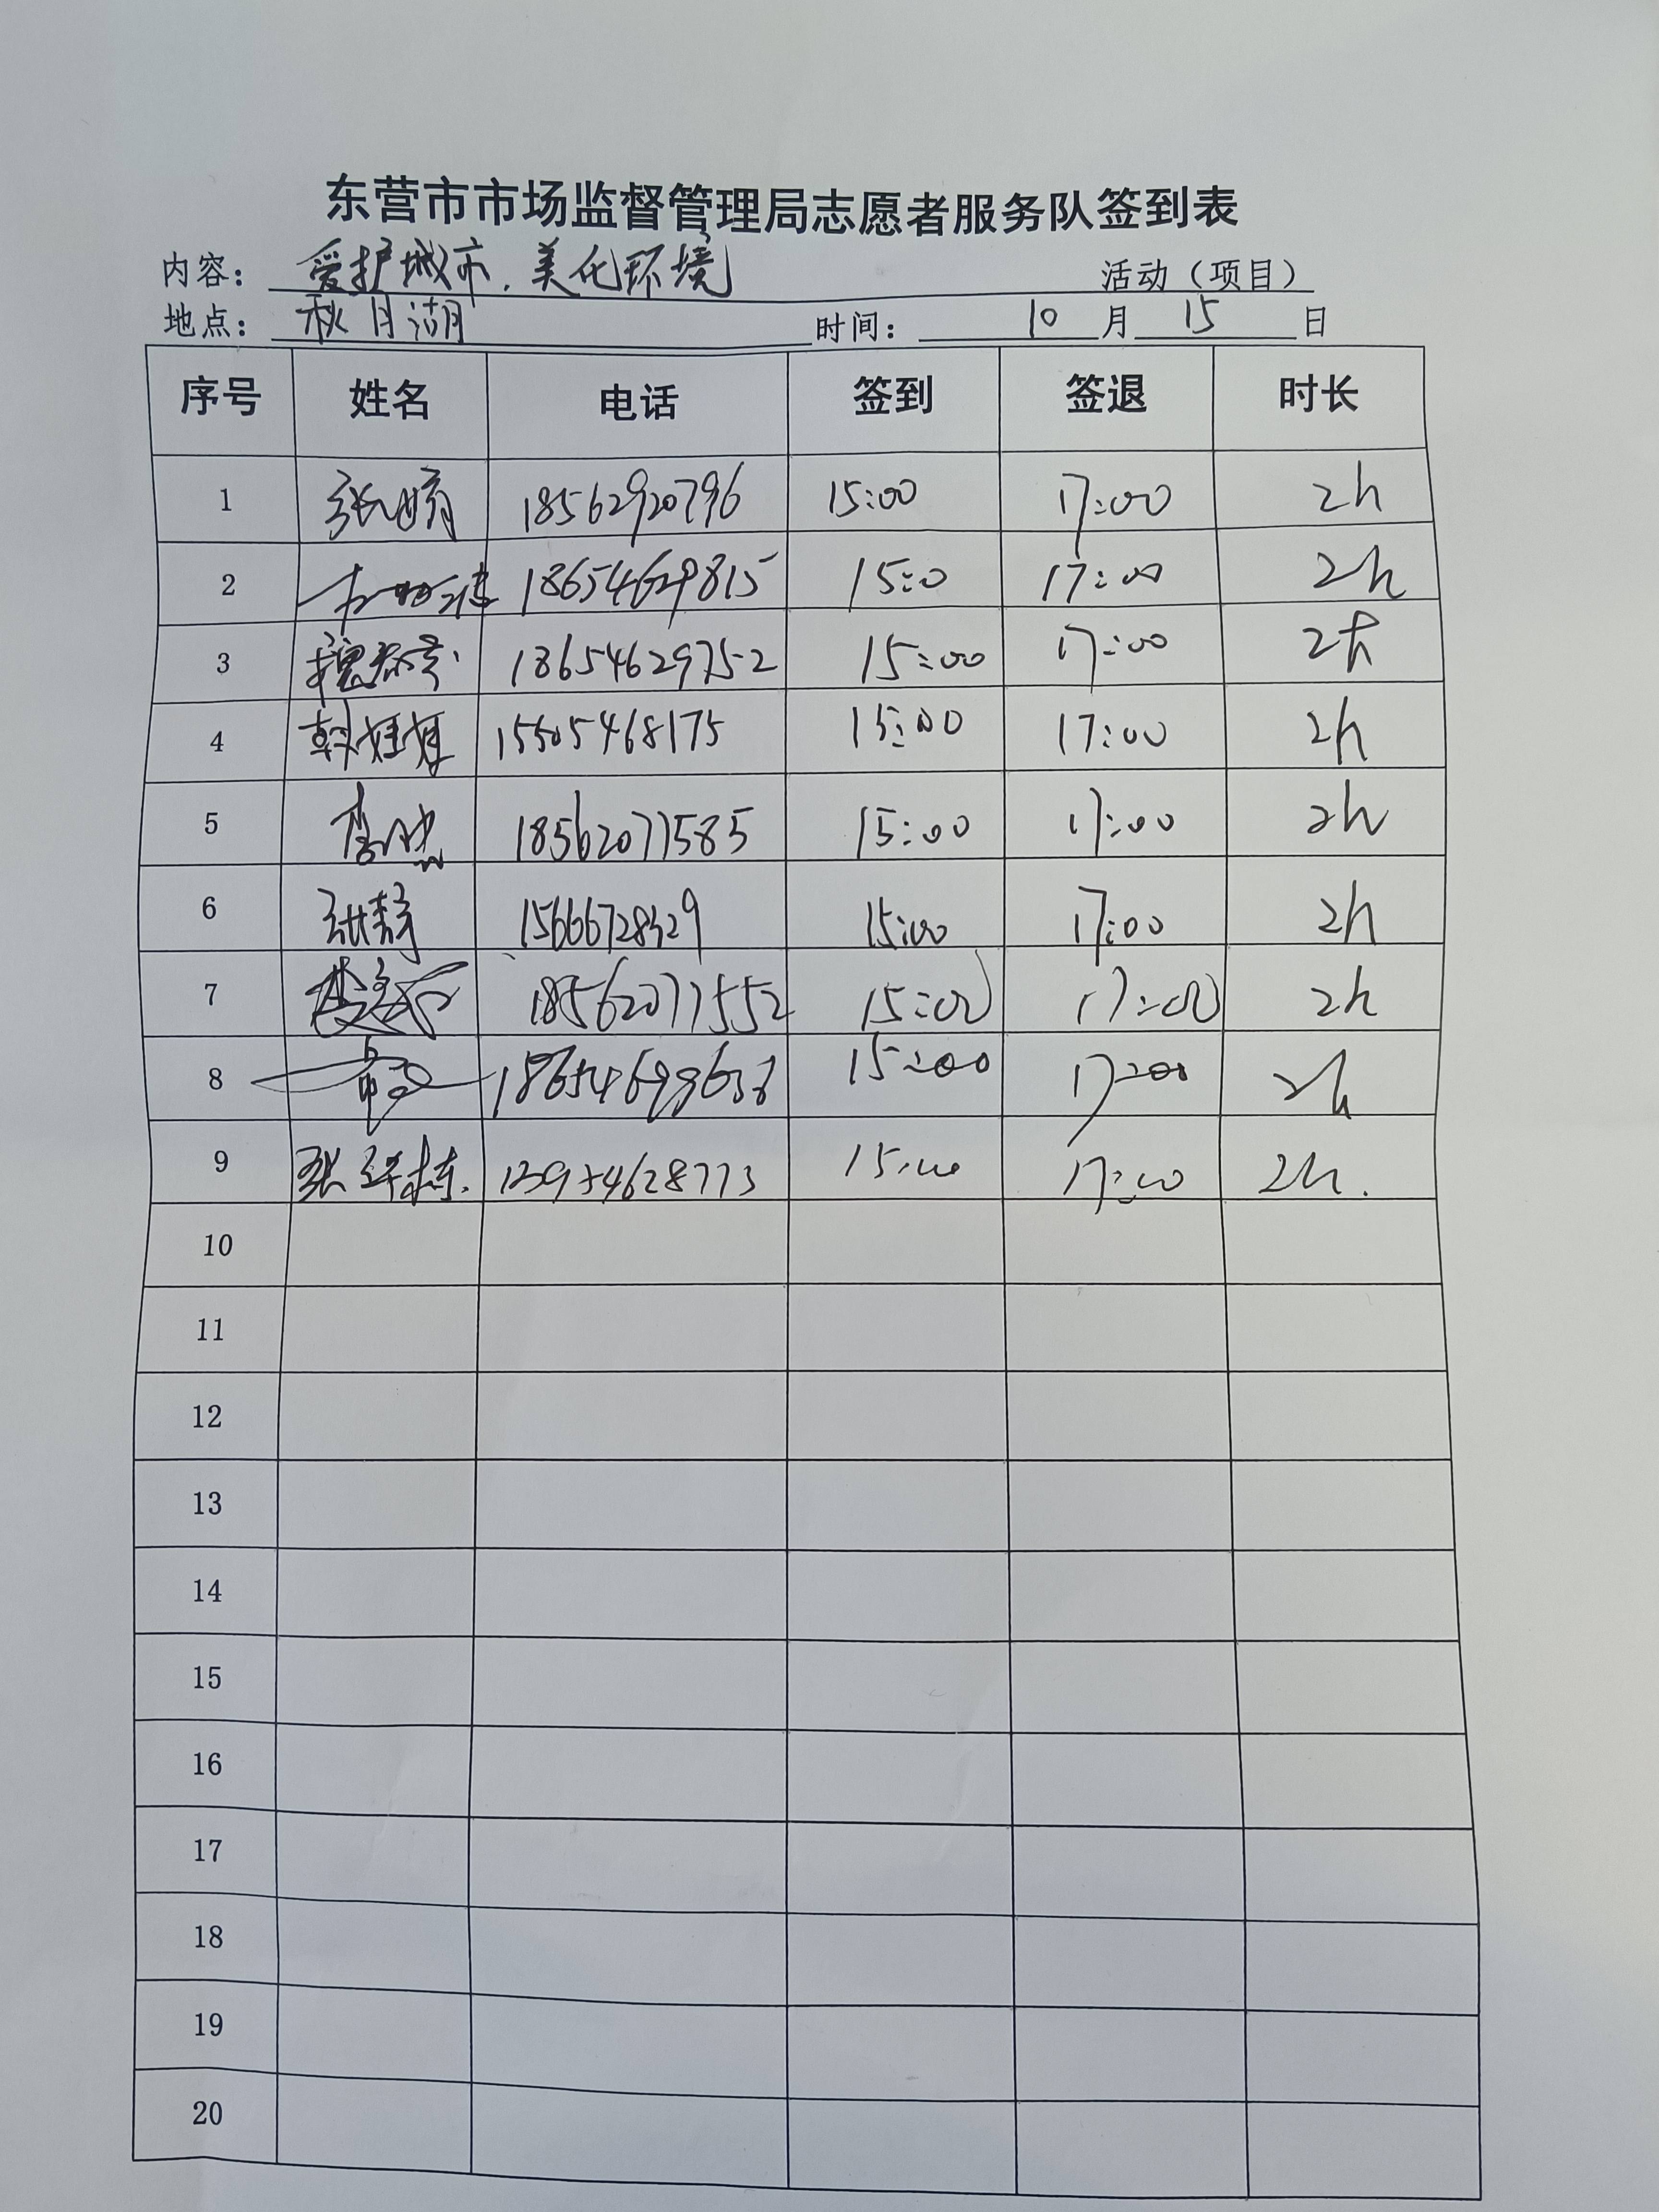 东营市市场监督管理局志愿者服务队签到表
内容： 爱护城市，美化环境 活动（项目）
地点： 秋月湖 时间： 10 月 15 日
序号 姓名 电话 签到 签退 时长
1 张婧 18562920796 15:00 17:00 2h
2 18654629815 15:0 17:00 2h
3 18654629752 15:00 17:00 2h
4 韩娃娃 15505468175 15:00 17:00 2h
5 18562077585 15:00 17:00 2h
6 张静 15:00 17:00 2h
7 18562077552 15:00 17:00 2h
8 15:00 17:00 2h
9 13954628773 15:00 17:00 2h.
10
11
12
13
14
15
16
17
18
19
20